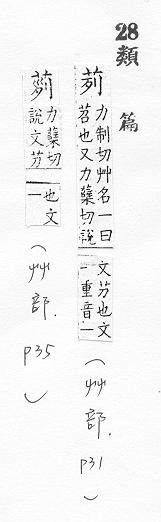 28 類篇
茢 力制切艸名一曰
苕也又力櫱切說
文芀也文
一重音一
(艸部. p31)
力櫱切
說文芀
也文
一
(艸部. p35)